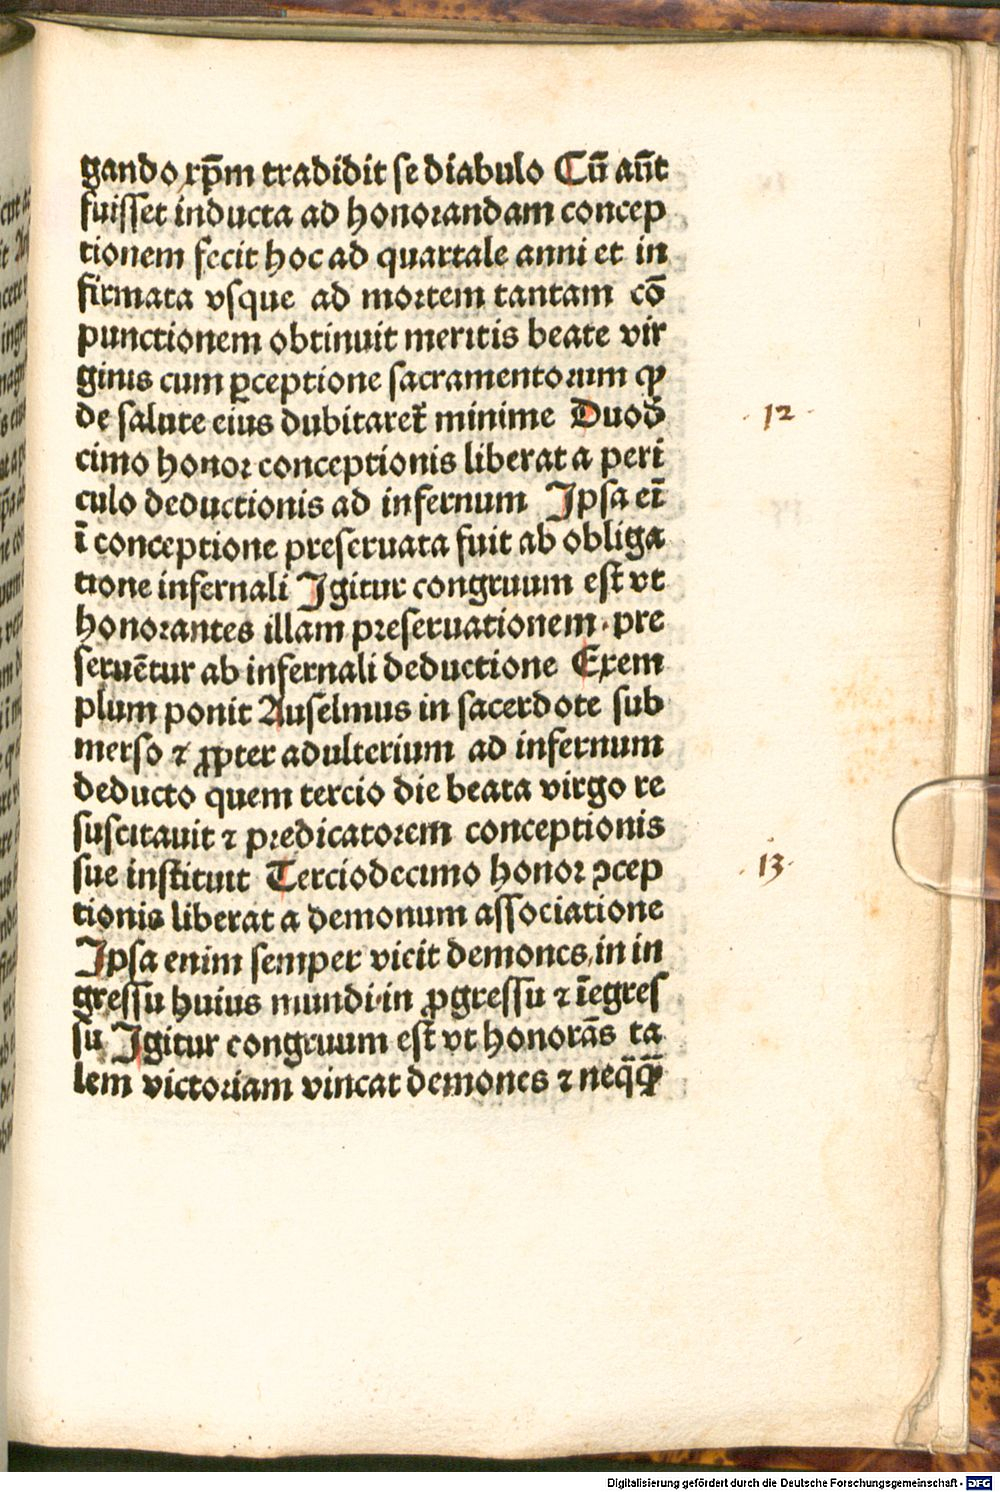 gando xp̄m tradidit se diabulo Cū aūt
fuisset inducta ad honorandam concep
tionem fecit hoc ad quartale anni et in
firmata vsque ad mortem tantam cō
punctionem obtinuit meritis beate vir
ginis cum ꝑceptione sacramentorum ꝙ
de salute eius dubitaret᷑ minime Duod̄
cimo honor conceptionis liberat a peri
culo deductionis ad infernum Ipsa eī
ī conceptione preseruata fuit ab obliga
tione infernali Igitur congruum est̄ vt
honorantes illam preseruationem · pre
seruēt​ur ab infernali deductione Exem
plum ponit Auselmus in sacerdote sub
merso ⁊ ꝓpter adulterium ad infernum
deducto quem tercio die beata virgo re
suscitauit ⁊ predicatorem conceptionis
sue instituit Terciodecimo honor ꝯcep
tionis liberat a demonum associatione
Ipsa enim semper vicit demones, in in
gressu huius mundi · in ꝓgressu ⁊ īegres
su Igitur congruum est̄ vt honorās ta
lem victoriam vincat demones ⁊ neq̄ꝙ̄
· 12 ·
· 13 ·
Digitalisierung gefördert durch die Deutsche Forschungsgemeinschaft - DFG